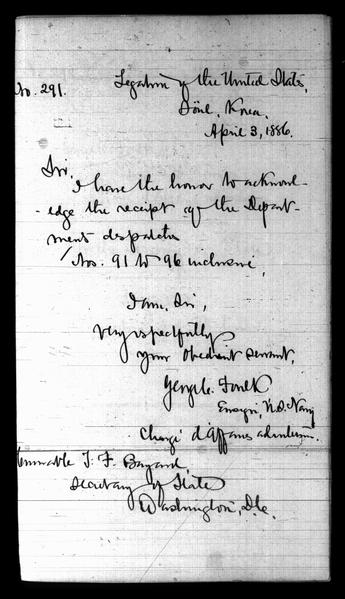 No. 291.
Legation of the United States,
Söul, Korea.
April 3, 1886.
Sir,
I have the honor to acknowl-
-edge the receipt of the Depart-
ments despatches
Nos. 91 to 96 inclusive,
I am, Sir,
Very respectfully
your obedient servant,
George C. Foulk
Ensign, U.S. Navy
Chargé d'affaires ad interim.
Honorable T. F. Bayard,
Secretary of State
Washington, D.C.